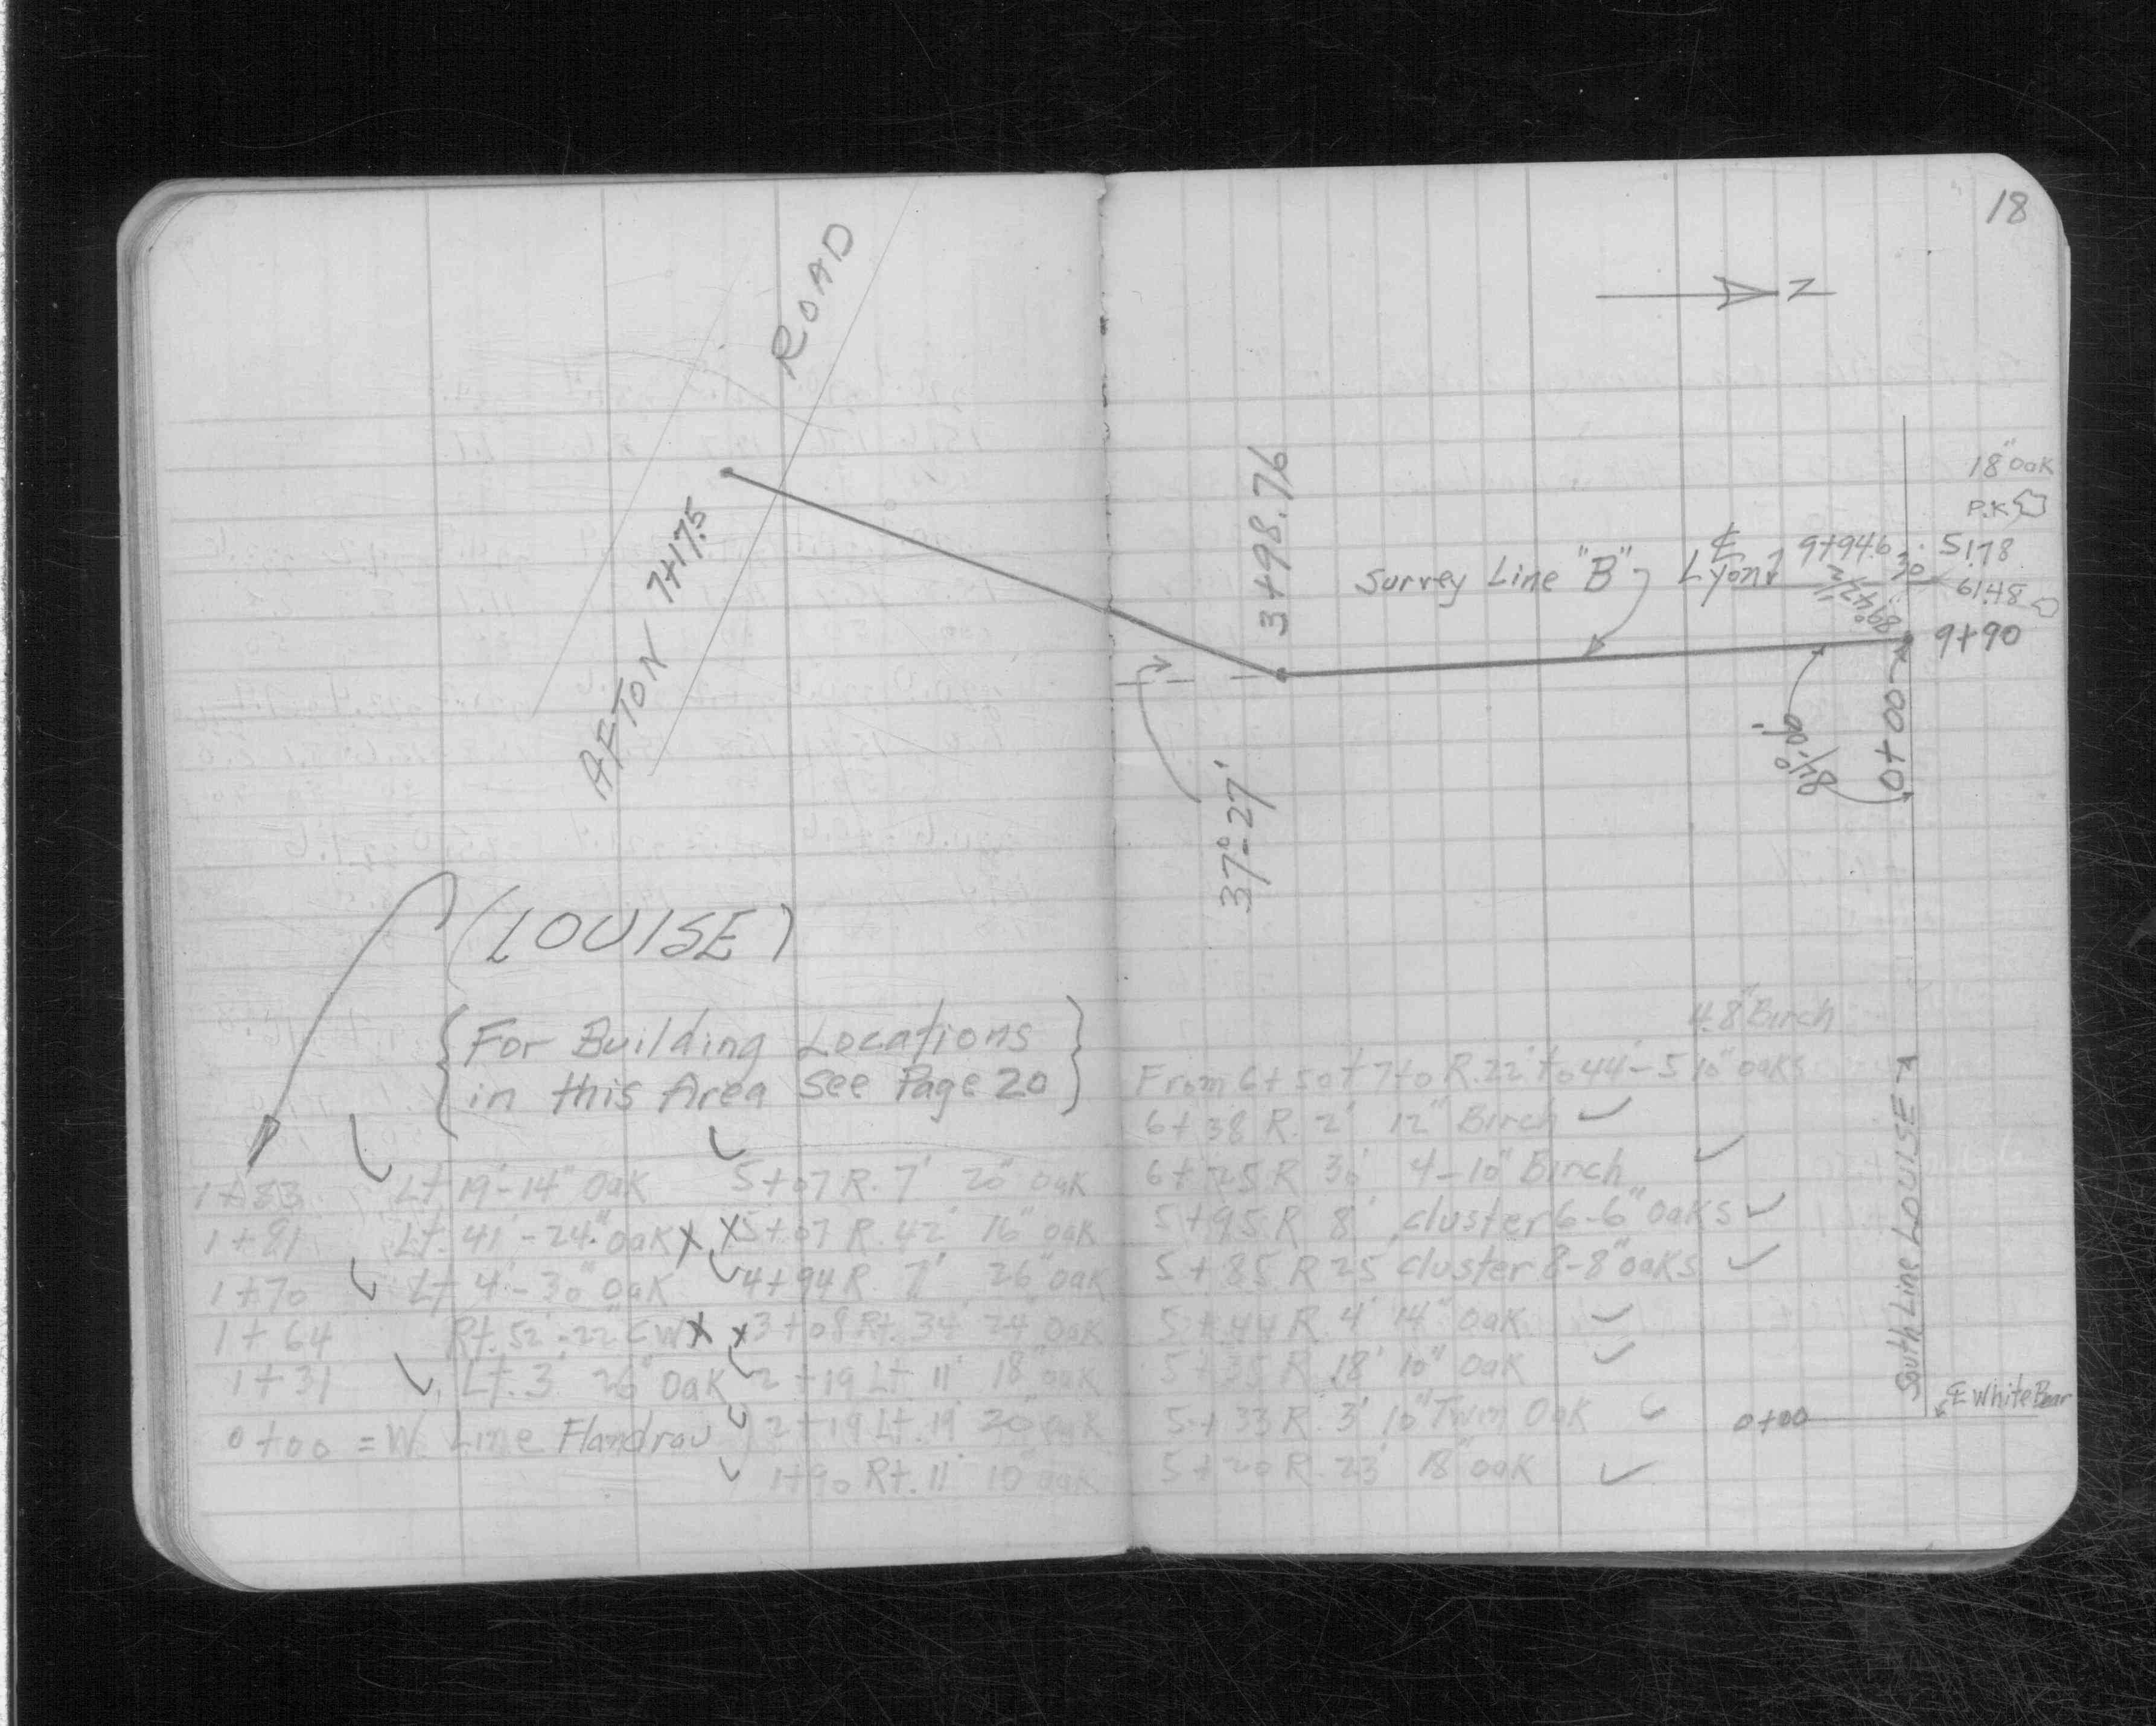 18
N
ROAD
AFTON 7+17.5
3+98.76
37°-27'
Survey Line "B"
℄
Lyon
9+94.6
30
51.78
61.48
18" Oak
P.K
9+90
0+00
South Line LOUISE
℄ White Bear
0+00
(LOUISE)
{For Building Locations
in this Area See Page 20}
1+83 Lt 19'-14" Oak
1+81 Lt. 41'-24" Oak X
1+70 Lt 4'-30" Oak
1+64 Rt. 52'-22" CW X
1+31 Lt. 3' 26" Oak
0+00 = W. Line Flandrau
5+07 R. 7' 20" Oak
X 5+07 R. 42' 16" Oak
4+94 R. 7' 26" Oak
X 3+08 Rt. 34' 24" Oak
2+19 Lt. 11' 18" Oak
2+19 Lt. 19' 20" Oak
1+90 Rt. 11' 10" Oak
4 8" Birch
From 6+50 + 7+0 R. 22' to 44' - 5 10" Oaks
6+38 R. 2' 12" Birch
6+25 R 30' 4-10" Birch
5+95 R 8' cluster 6-6" Oaks
5+85 R 25' cluster 8-8" Oaks
5+44 R 4' 14" Oak
5+35 R 18' 10" Oak
5+33 R. 3' 10" Twin Oak
5+20 R. 23' 18" Oak